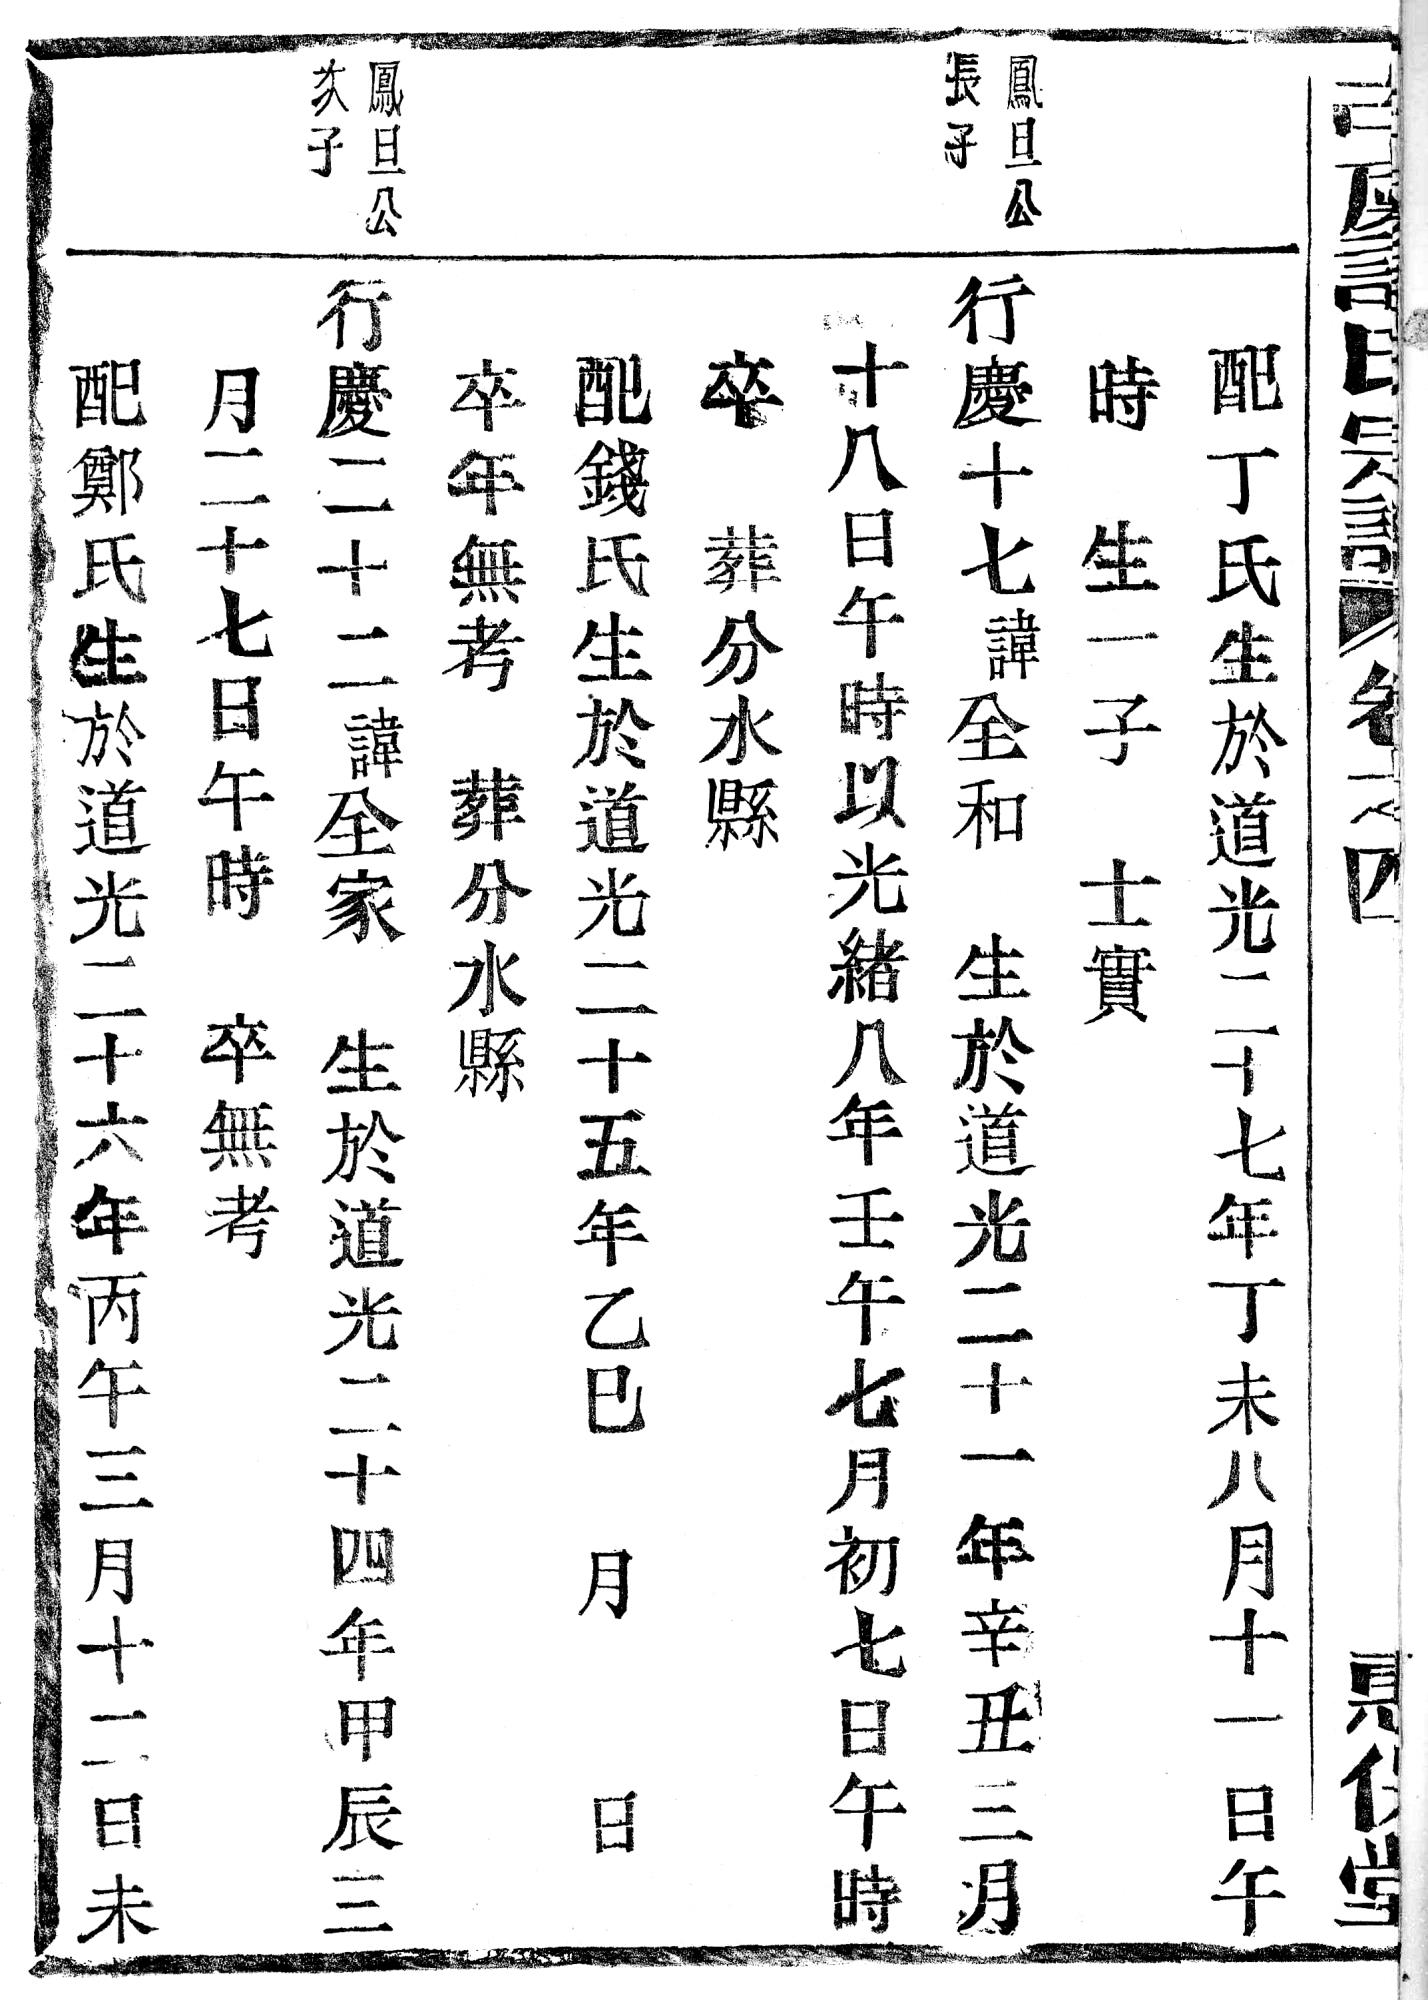 氏宗譜 卷之四
堂
配丁氏生於道光二十七年丁未八月十一日午
時 生一子 士實
鳳旦公
長子
行慶十七諱全和 生於道光二十一年辛丑三月
十八日午時以光緒八年壬午七月初七日午時
卒 葬分水縣
配錢氏生於道光二十五年乙巳 月 日
卒年無考 葬分水縣
鳳旦公
次子
行慶二十二諱全家 生於道光二十四年甲辰三
月二十七日午時 卒無考
配鄭氏生於道光二十六年丙午三月十二日未